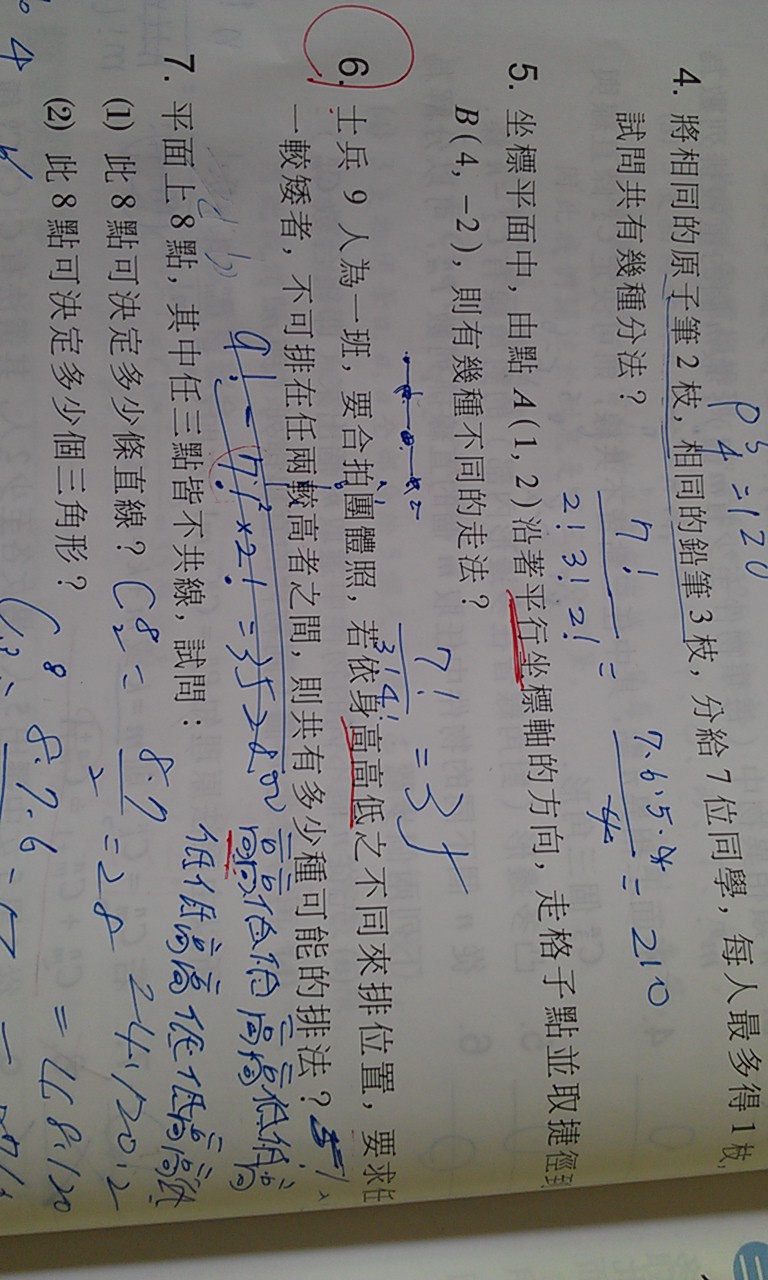 P⁵₄ = 120
4. 將相同的原子筆 2 枝，相同的鉛筆 3 枝，分給 7 位同學，每人最多得 1 枝，
試問共有幾種分法？
7! / 2!3!2! = 7·6·5·4 / 4 = 210
5. 坐標平面中，由點 A(1, 2) 沿著平行坐標軸的方向，走格子點並取捷徑到
B(4, −2)，則有幾種不同的走法？
7! / 3!4! = 35
6. 士兵 9 人為一班，要合拍團體照，若依身高高低之不同來排位置，要求任
一較矮者，不可排在任兩較高者之間，則共有多少種可能的排法？
9! − 7! × 2! = 352800
高高低低高高低低高
低低高高低低高高低
7. 平面上 8 點，其中任三點皆不共線，試問：
(1) 此 8 點可決定多少條直線？ C⁸₂ = 8·7 / 2 = 28
24·120·2
(2) 此 8 點可決定多少個三角形？
C⁸₃ = 8·7·6
= 48·120
4